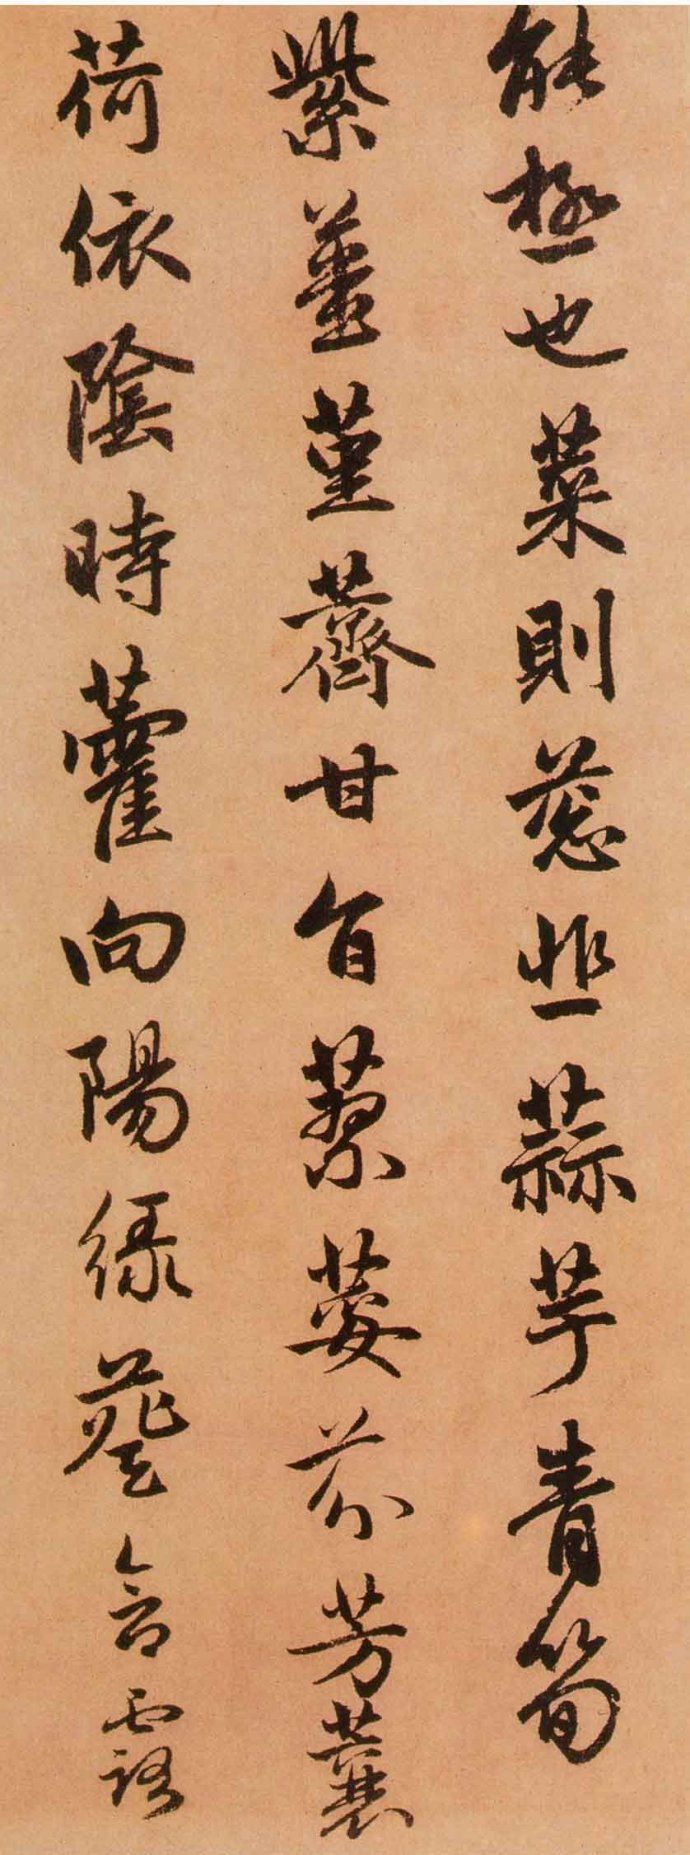 能極也菜則葱韭蒜芋青筍
紫薑菫薺甘旨蓼荽芬芳蘘
荷依陰時藿向陽綠葵含露